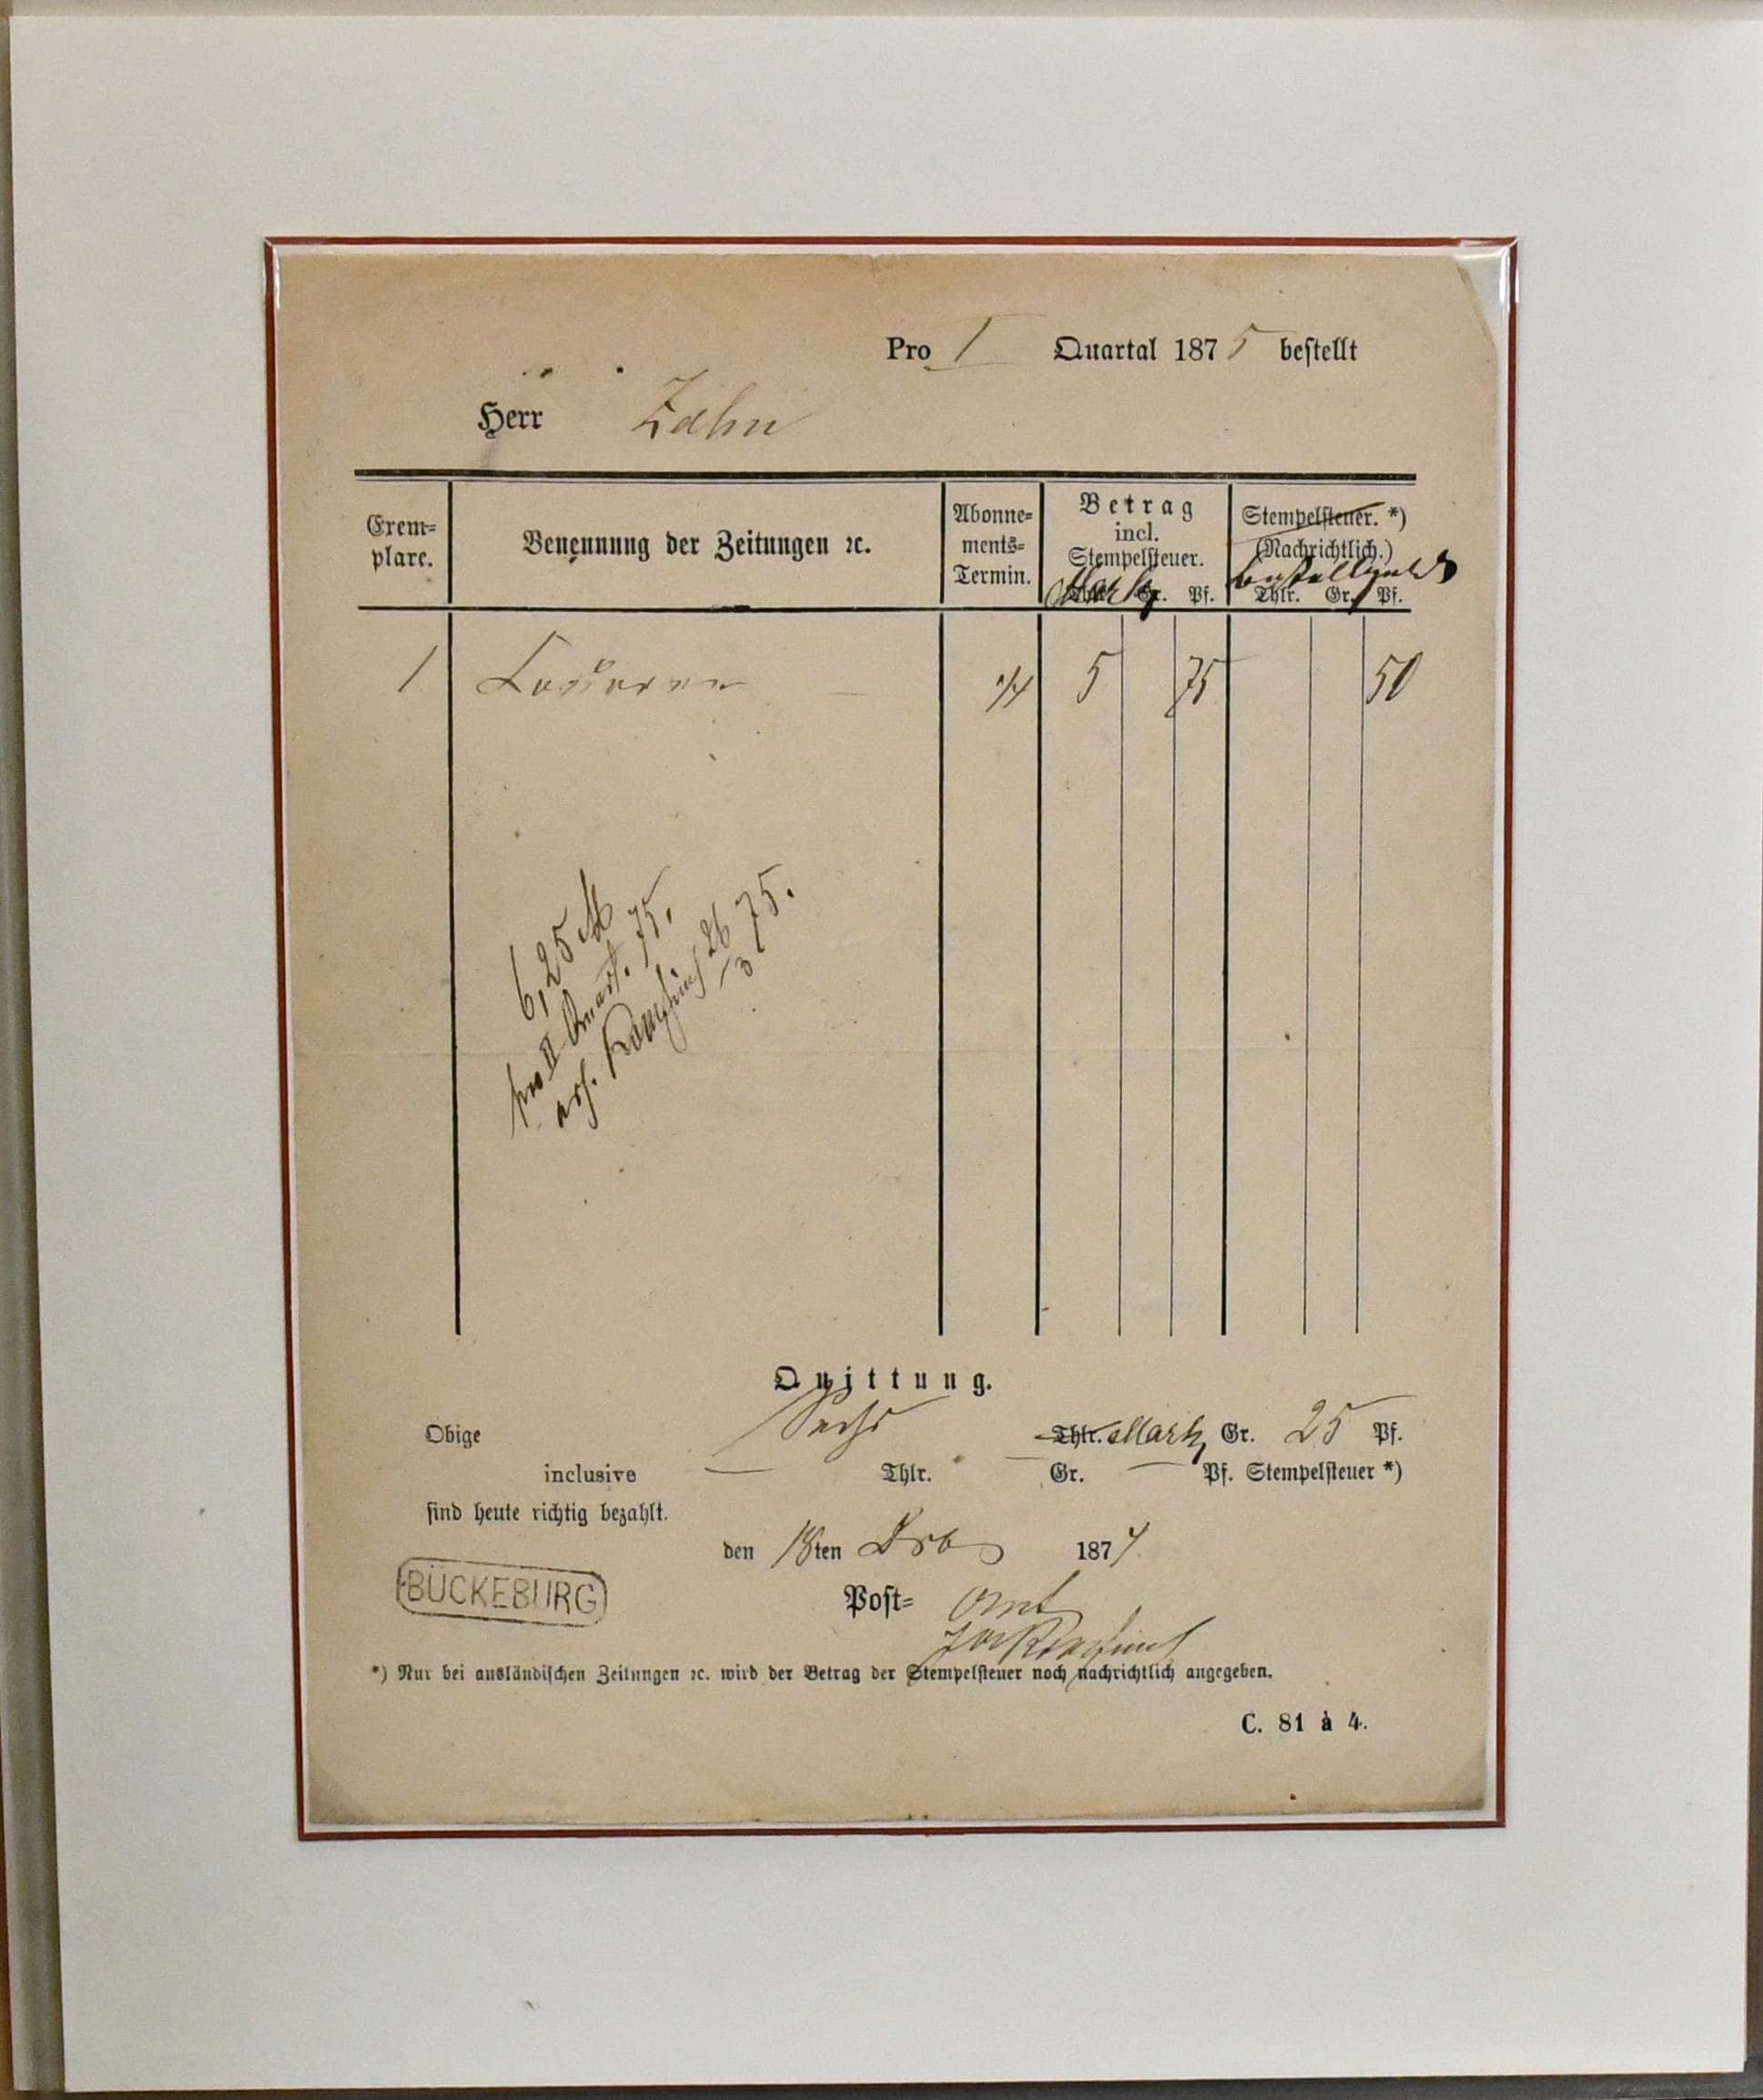 Pro I Quartal 1875 bestellt
Herr Zahn
Exem-
plare.
Benennung der Zeitungen ꝛc.
Abonne-
ments-
Termin.
Betrag
incl.
Stempelsteuer.
Mark Gr. Pf.
Stempelsteuer. *)
(Nachrichtlich.)
Bestellgeld
Thlr. Gr. Pf.
1 1/4 5 75 50
6,25 M
pro II Quart. 75.
26 75.
3
Quittung.
Obige Sechs Thlr. Mark Gr. 25 Pf.
inclusive — Thlr. — Gr. — Pf. Stempelsteuer *)
sind heute richtig bezahlt.
den 18ten Dcb 1874
BÜCKEBURG
Post= Amt
*) Nur bei ausländischen Zeitungen ꝛc. wird der Betrag der Stempelsteuer noch nachrichtlich angegeben.
C. 81 à 4.